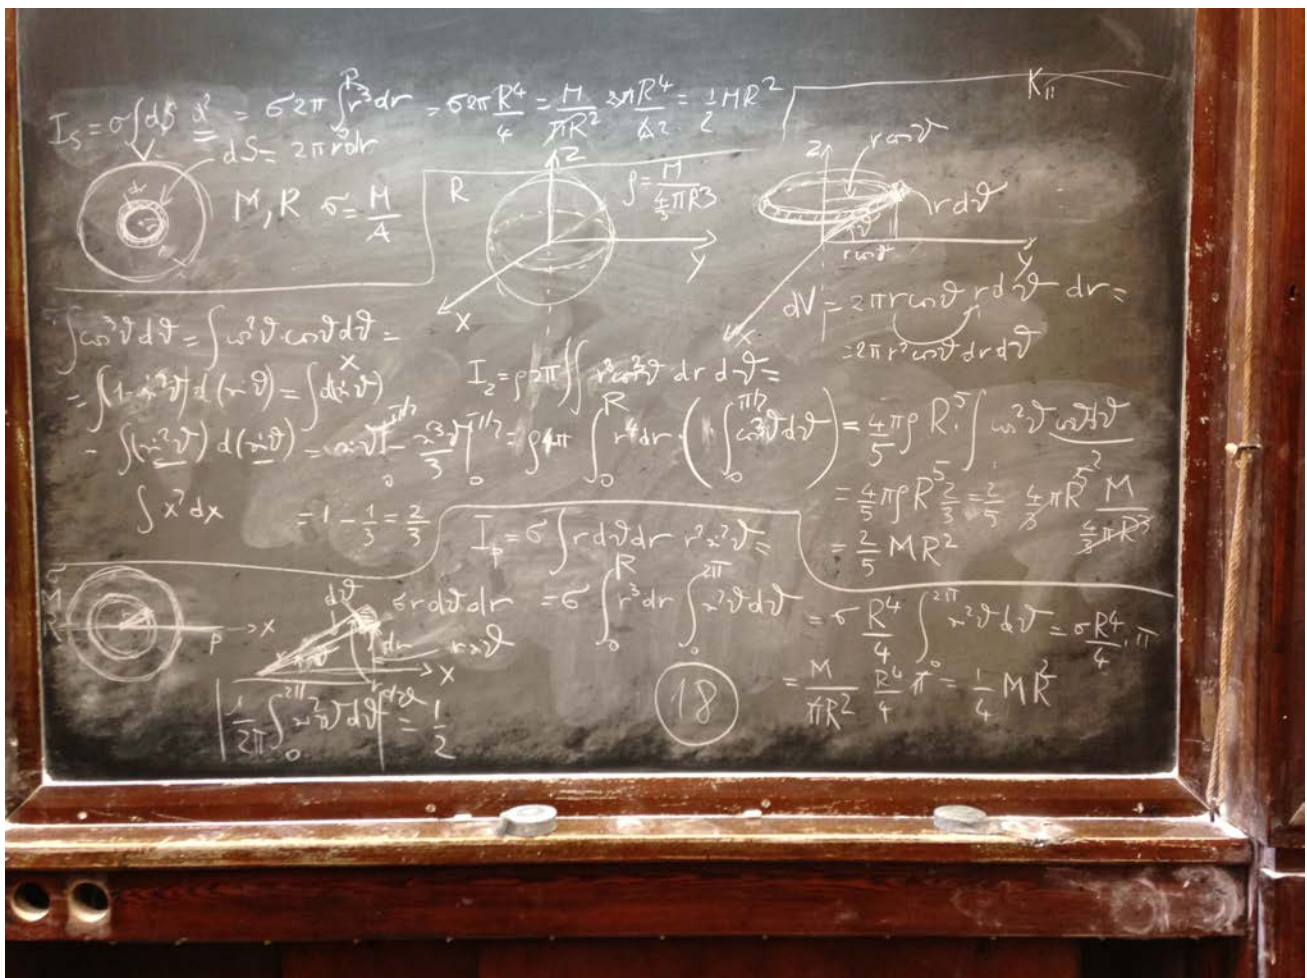 I_S = σ∫dS d² = σ2π∫₀ᴿ r³dr = σ2π R⁴/4 = M/πR² 2πR⁴/4 2 = 1/2 MR²
dS = 2πrdr
M, R σ = M/A
K_II
R
z
ρ = M/(4/3 πR³)
y
x
z
r cosϑ
r dϑ
ϑ
r cosϑ
y
x
dV = 2πr cosϑ r dϑ dr =
= 2πr² cosϑ dr dϑ
∫cos³ϑ dϑ = ∫cos²ϑ · cosϑ dϑ =
x
= ∫(1 - sin²ϑ) d(sinϑ) = ∫d(sinϑ)
- ∫(sin²ϑ) d(sinϑ) = sinϑ|₀^π/2 - sin³ϑ/3|₀^π/2
∫x²dx = 1 - 1/3 = 2/3
I_z = ρ2π∫∫ r²cos²ϑ dr dϑ =
= ρ4π ∫₀ᴿ r⁴dr · (∫₀^π/2 cos³ϑ dϑ) = 4/5 πρ R⁵ · ∫cos²ϑ cosϑ dϑ
= 4/5 πρR⁵ 2/3 = 2/5 4/3 πR⁵ M/(4/3 πR³)
= 2/5 MR²
M
R
p
x
dϑ
σr dϑ dr
dr
r sinϑ
x
r dϑ
|1/2π ∫₀^2π sin²ϑ dϑ| = 1/2
I_p = σ ∫ r dϑ dr r² sin²ϑ =
= σ ∫₀ᴿ r³dr ∫₀^2π sin²ϑ dϑ = σ R⁴/4 ∫₀^2π sin²ϑ dϑ = σR⁴/4 · π
= M/πR² R⁴/4 π = 1/4 MR²
18